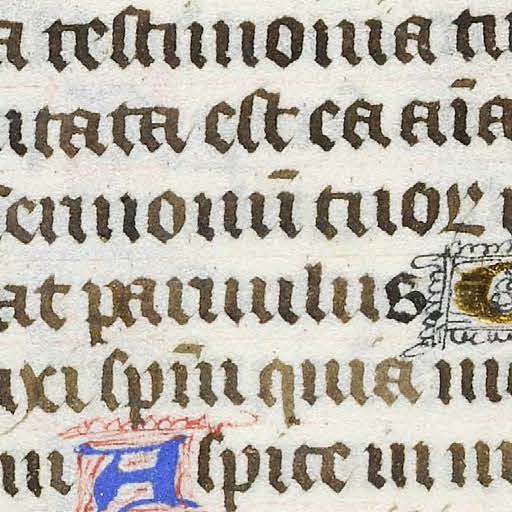 a testimonia tu
itata est ea aīa
sermonū tuoꝝ
at paruulus
xi spm̄ quia m
Aspice in m